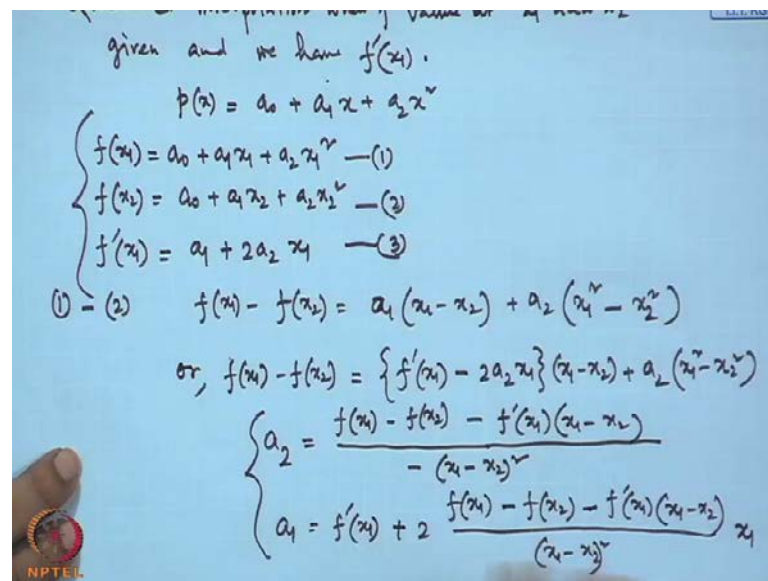 given and we have f'(x₁).
p(x) = a₀ + a₁x + a₂x²
f(x₁) = a₀ + a₁x₁ + a₂x₁² —(1)
f(x₂) = a₀ + a₁x₂ + a₂x₂² —(2)
f'(x₁) = a₁ + 2a₂x₁ —(3)
① - (2) f(x₁) - f(x₂) = a₁(x₁-x₂) + a₂(x₁² - x₂²)
or, f(x₁) - f(x₂) = {f'(x₁) - 2a₂x₁}(x₁-x₂) + a₂(x₁²-x₂²)
a₂ = (f(x₁) - f(x₂) - f'(x₁)(x₁-x₂)) / (-(x₁-x₂)²)
a₁ = f'(x₁) + 2 (f(x₁) - f(x₂) - f'(x₁)(x₁-x₂)) / ((x₁-x₂)²) x₁
NPTEL